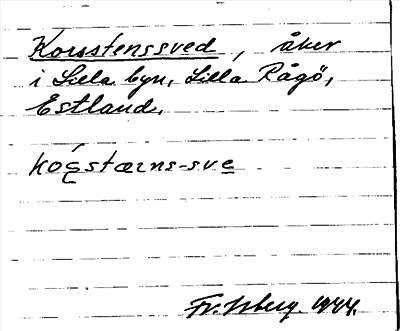 Korsstenssved, åker
i Lilla byn, Lilla Rågö,
Estland.
kog̨stæɪns-sve
Fr. Isberg. 1944.